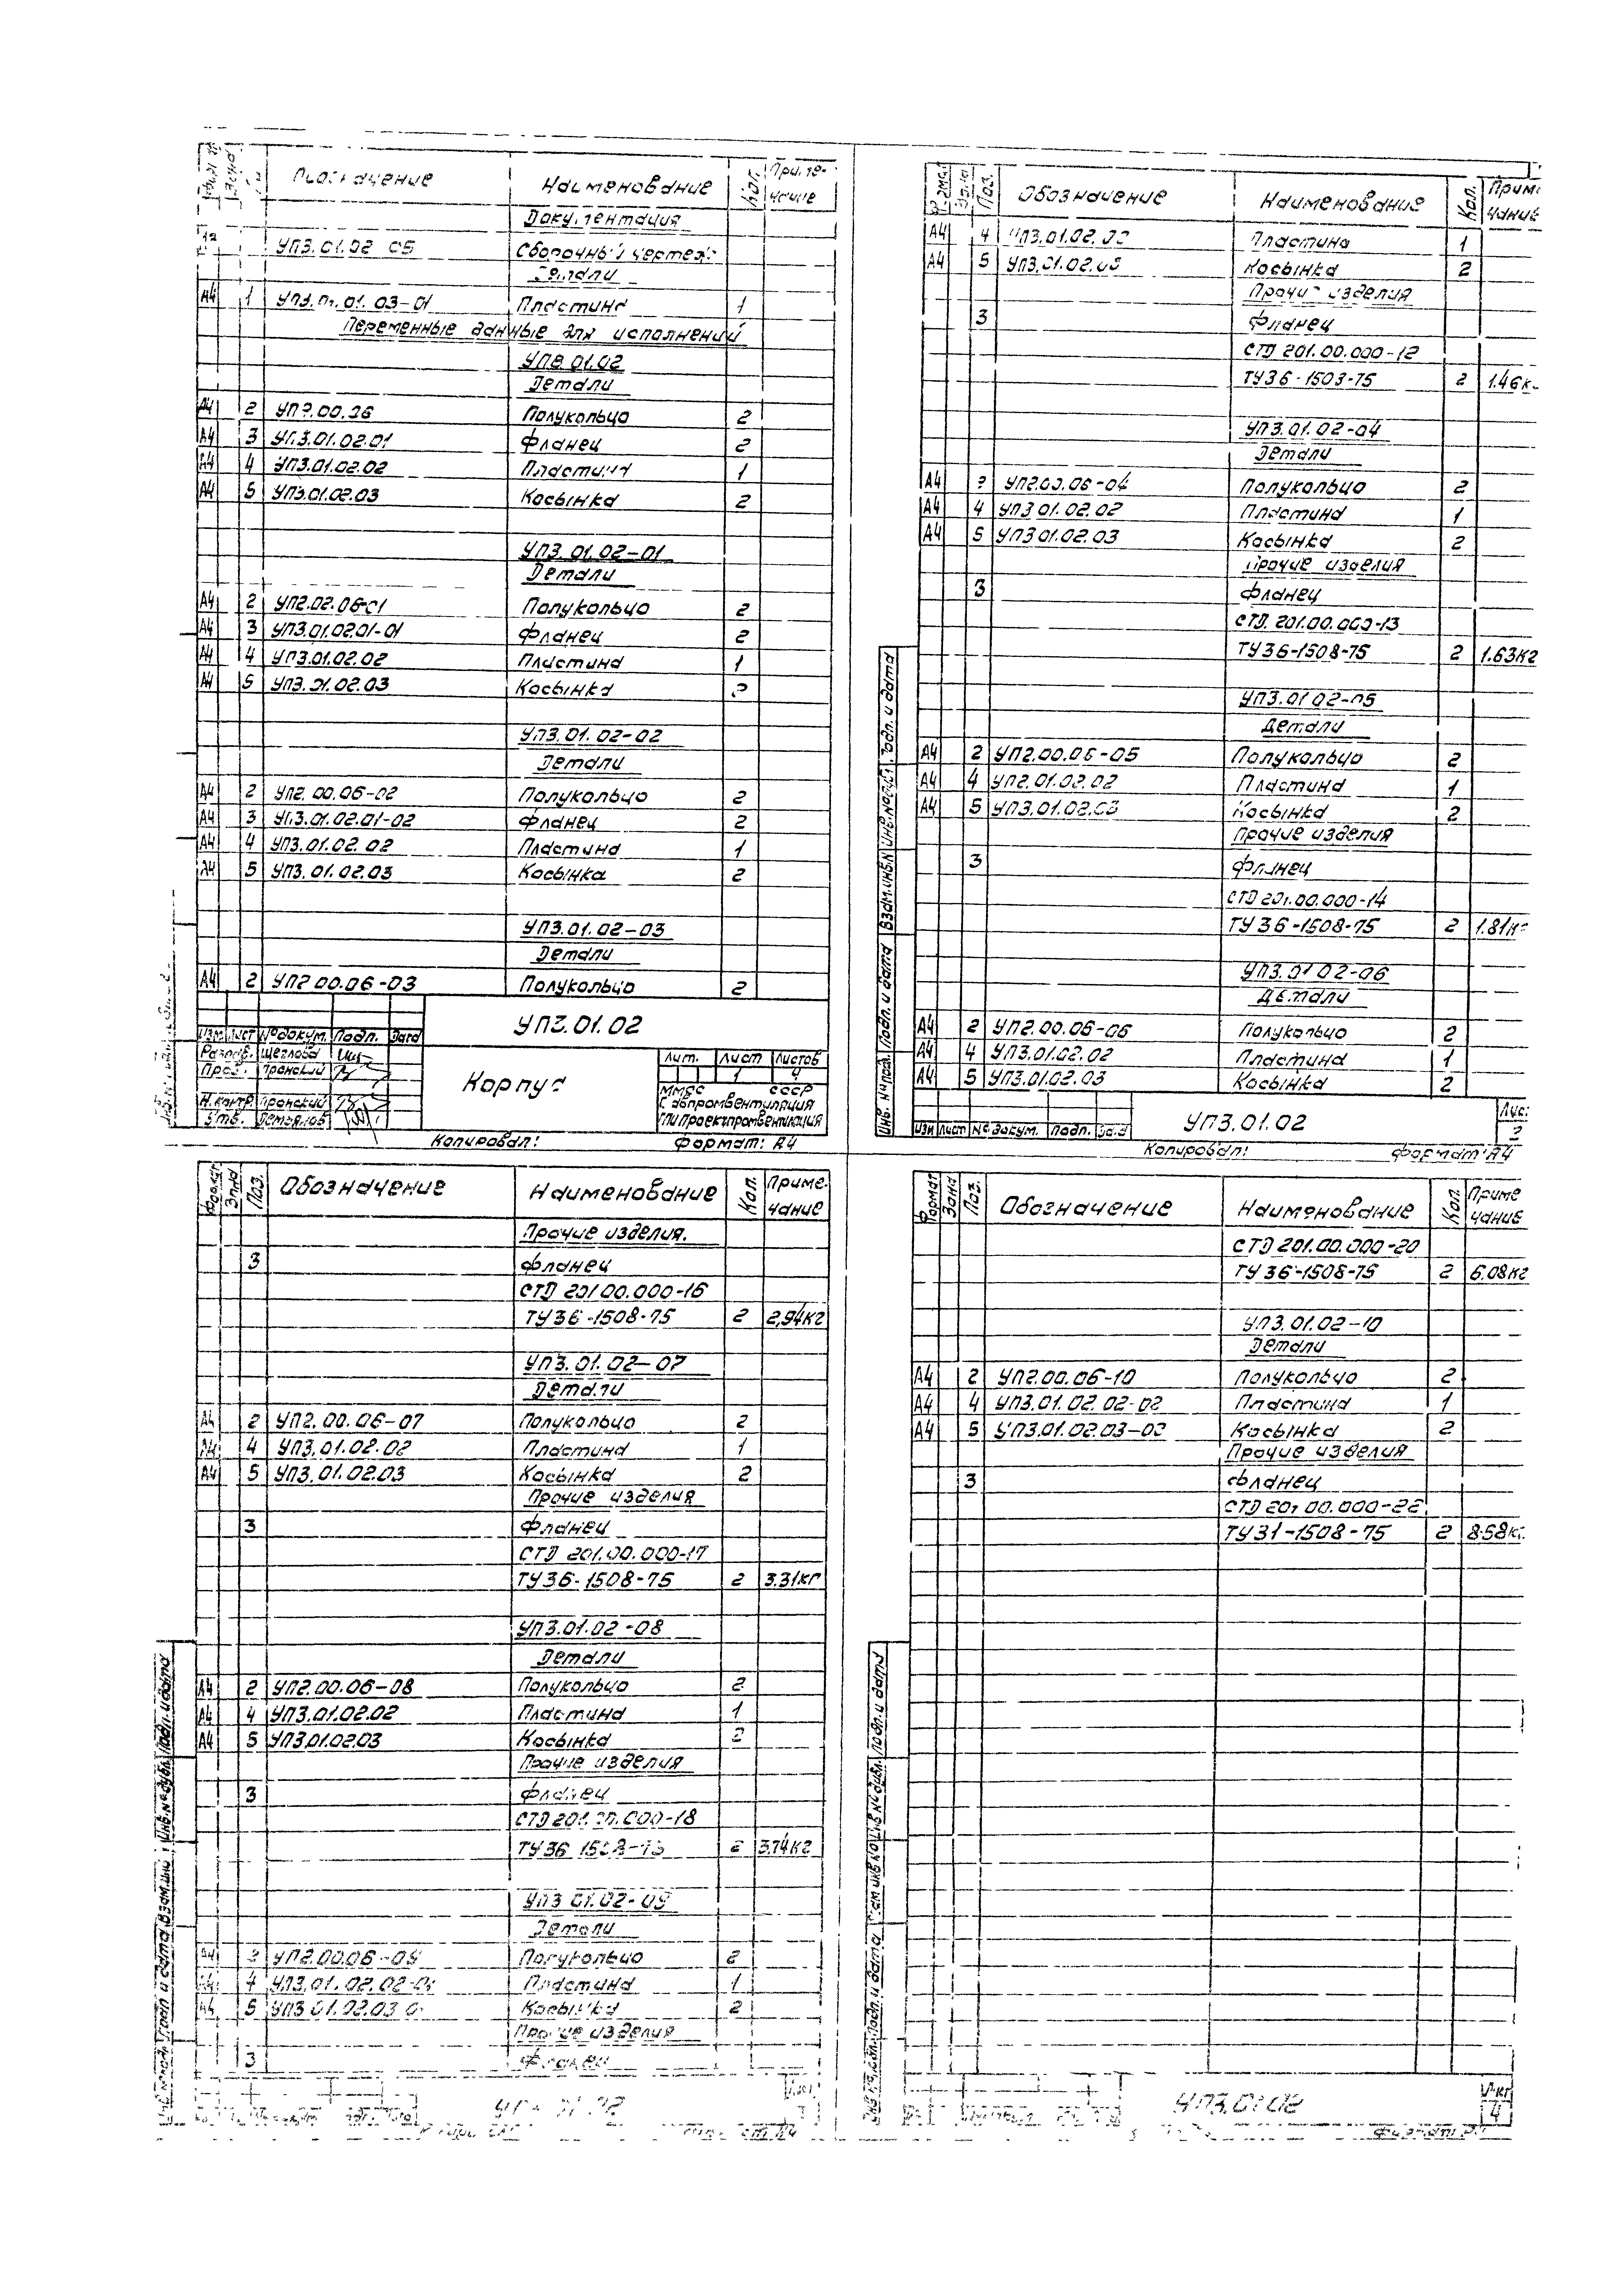 Обозначение Наименование Кол. Примечание
Документация
УПЗ.01.02 СБ Сборочный чертеж
Детали
А4 1 03-01 Пластина 1
Переменные данные для исполнений
УПЗ.01.02
Детали
А4 2 Полукольцо 2
А4 3 УПЗ.01.02.01 Фланец 2
А4 4 УПЗ.01.02.02 Пластина 1
А4 5 УПЗ.01.02.03 Косынка 2
УПЗ.01.02-01
Детали
А4 2 УП2.02.06-01 Полукольцо 2
А4 3 УПЗ.01.02.01-01 Фланец 2
А4 4 УПЗ.01.02.02 Пластина 1
А4 5 УПЗ.01.02.03 Косынка 2
УПЗ.01.02-02
Детали
А4 2 УП2.00.06-02 Полукольцо 2
А4 3 УПЗ.01.02.01-02 Фланец 2
А4 4 УПЗ.01.02.02 Пластина 1
А4 5 УПЗ.01.02.03 Косынка 2
УПЗ.01.02-03
Детали
А4 2 УП2 00.06-03 Полукольцо 2
УПЗ.01.02
Изм. Лист № докум. Подп. Дата
Разраб. Щеглова
Пров. Пронский
Н.контр. Пронский
Утв.
Корпус
Лит. Лист Листов
1 4
ММСС СССР
Главпромвентиляция
ГПИ Проектпромвентиляция
Копировал: Формат: А4
Формат Зона Поз. Обозначение Наименование Кол. Приме чание
А4 4 Пластина 1
А4 5 УПЗ.01.02.03 Косынка 2
Прочие изделия
3 Фланец
СТД 201.00.000-12
ТУ36-1508-75 2 1.46кг
УПЗ.01.02-04
Детали
А4 2 УП2.00.06-04 Полукольцо 2
А4 4 УПЗ 01.02.02 Пластина 1
А4 5 УПЗ 01.02.03 Косынка 2
Прочие изделия
3 Фланец
СТД 201.00.000-13
ТУ36-1508-75 2 1.63кг
УПЗ.01 02-05
Детали
А4 2 УП2.00.06-05 Полукольцо 2
А4 4 УП2.01.02.02 Пластина 1
А4 5 УПЗ.01.02.03 Косынка 2
Прочие изделия
3 Фланец
СТД 201.00.000-14
ТУ 36-1508-75 2 1.81кг
УПЗ.01 02-06
Детали
А4 2 УП2.00.06-06 Полукольцо 2
А4 4 УПЗ.01.02.02 Пластина 1
А4 5 УПЗ.01.02.03 Косынка 2
Инв. № подл. Подп. и дата Взам.инв.№ Инв.№ дубл. Подп. и дата
Изм Лист № докум. Подп. Дата
УПЗ.01.02
Лис
2
Копировал: Формат: А4
Формат Зона Поз. Обозначение Наименование Кол. Приме- чание
Прочие изделия.
3 Фланец
СТД 201 00.000-16
ТУ36-1508-75 2 2,94кг
УПЗ.01.02-07
Детали
А4 2 УП2.00.06-07 Полукольцо 2
А4 4 УПЗ.01.02.02 Пластина 1
А4 5 УПЗ.01.02.03 Косынка 2
Прочие изделия
3 Фланец
СТД 201.00.000-17
ТУ36-1508-75 2 3.31кг
УПЗ.01.02-08
Детали
А4 2 УП2.00.06-08 Полукольцо 2
А4 4 УПЗ.01.02.02 Пластина 1
А4 5 УПЗ.01.02.03 Косынка 2
Прочие изделия
3 Фланец
СТД 201.00.000-18
ТУ36 1508-75 2 3.74кг
УПЗ 01.02-09
Детали
А4 2 УП2.00.06-09 Полукольцо 2
А4 4 Пластина 1
А4 5 Косынка 2
Прочие изделия
3 Фланец
Формат Зона Поз. Обозначение Наименование Кол. Приме чание
СТД 201.00.000-20
ТУ 36-1508-75 2 6.08кг
УПЗ.01.02-10
Детали
А4 2 УП2.00.06-10 Полукольцо 2
А4 4 УПЗ.01.02.02-02 Пластина 1
А4 5 УПЗ.01.02.03-02 Косынка 2
Прочие изделия
3 Фланец
СТД 201 00.000-22
ТУ31-1508-75 2 8.58кг
УПЗ.01 02
4